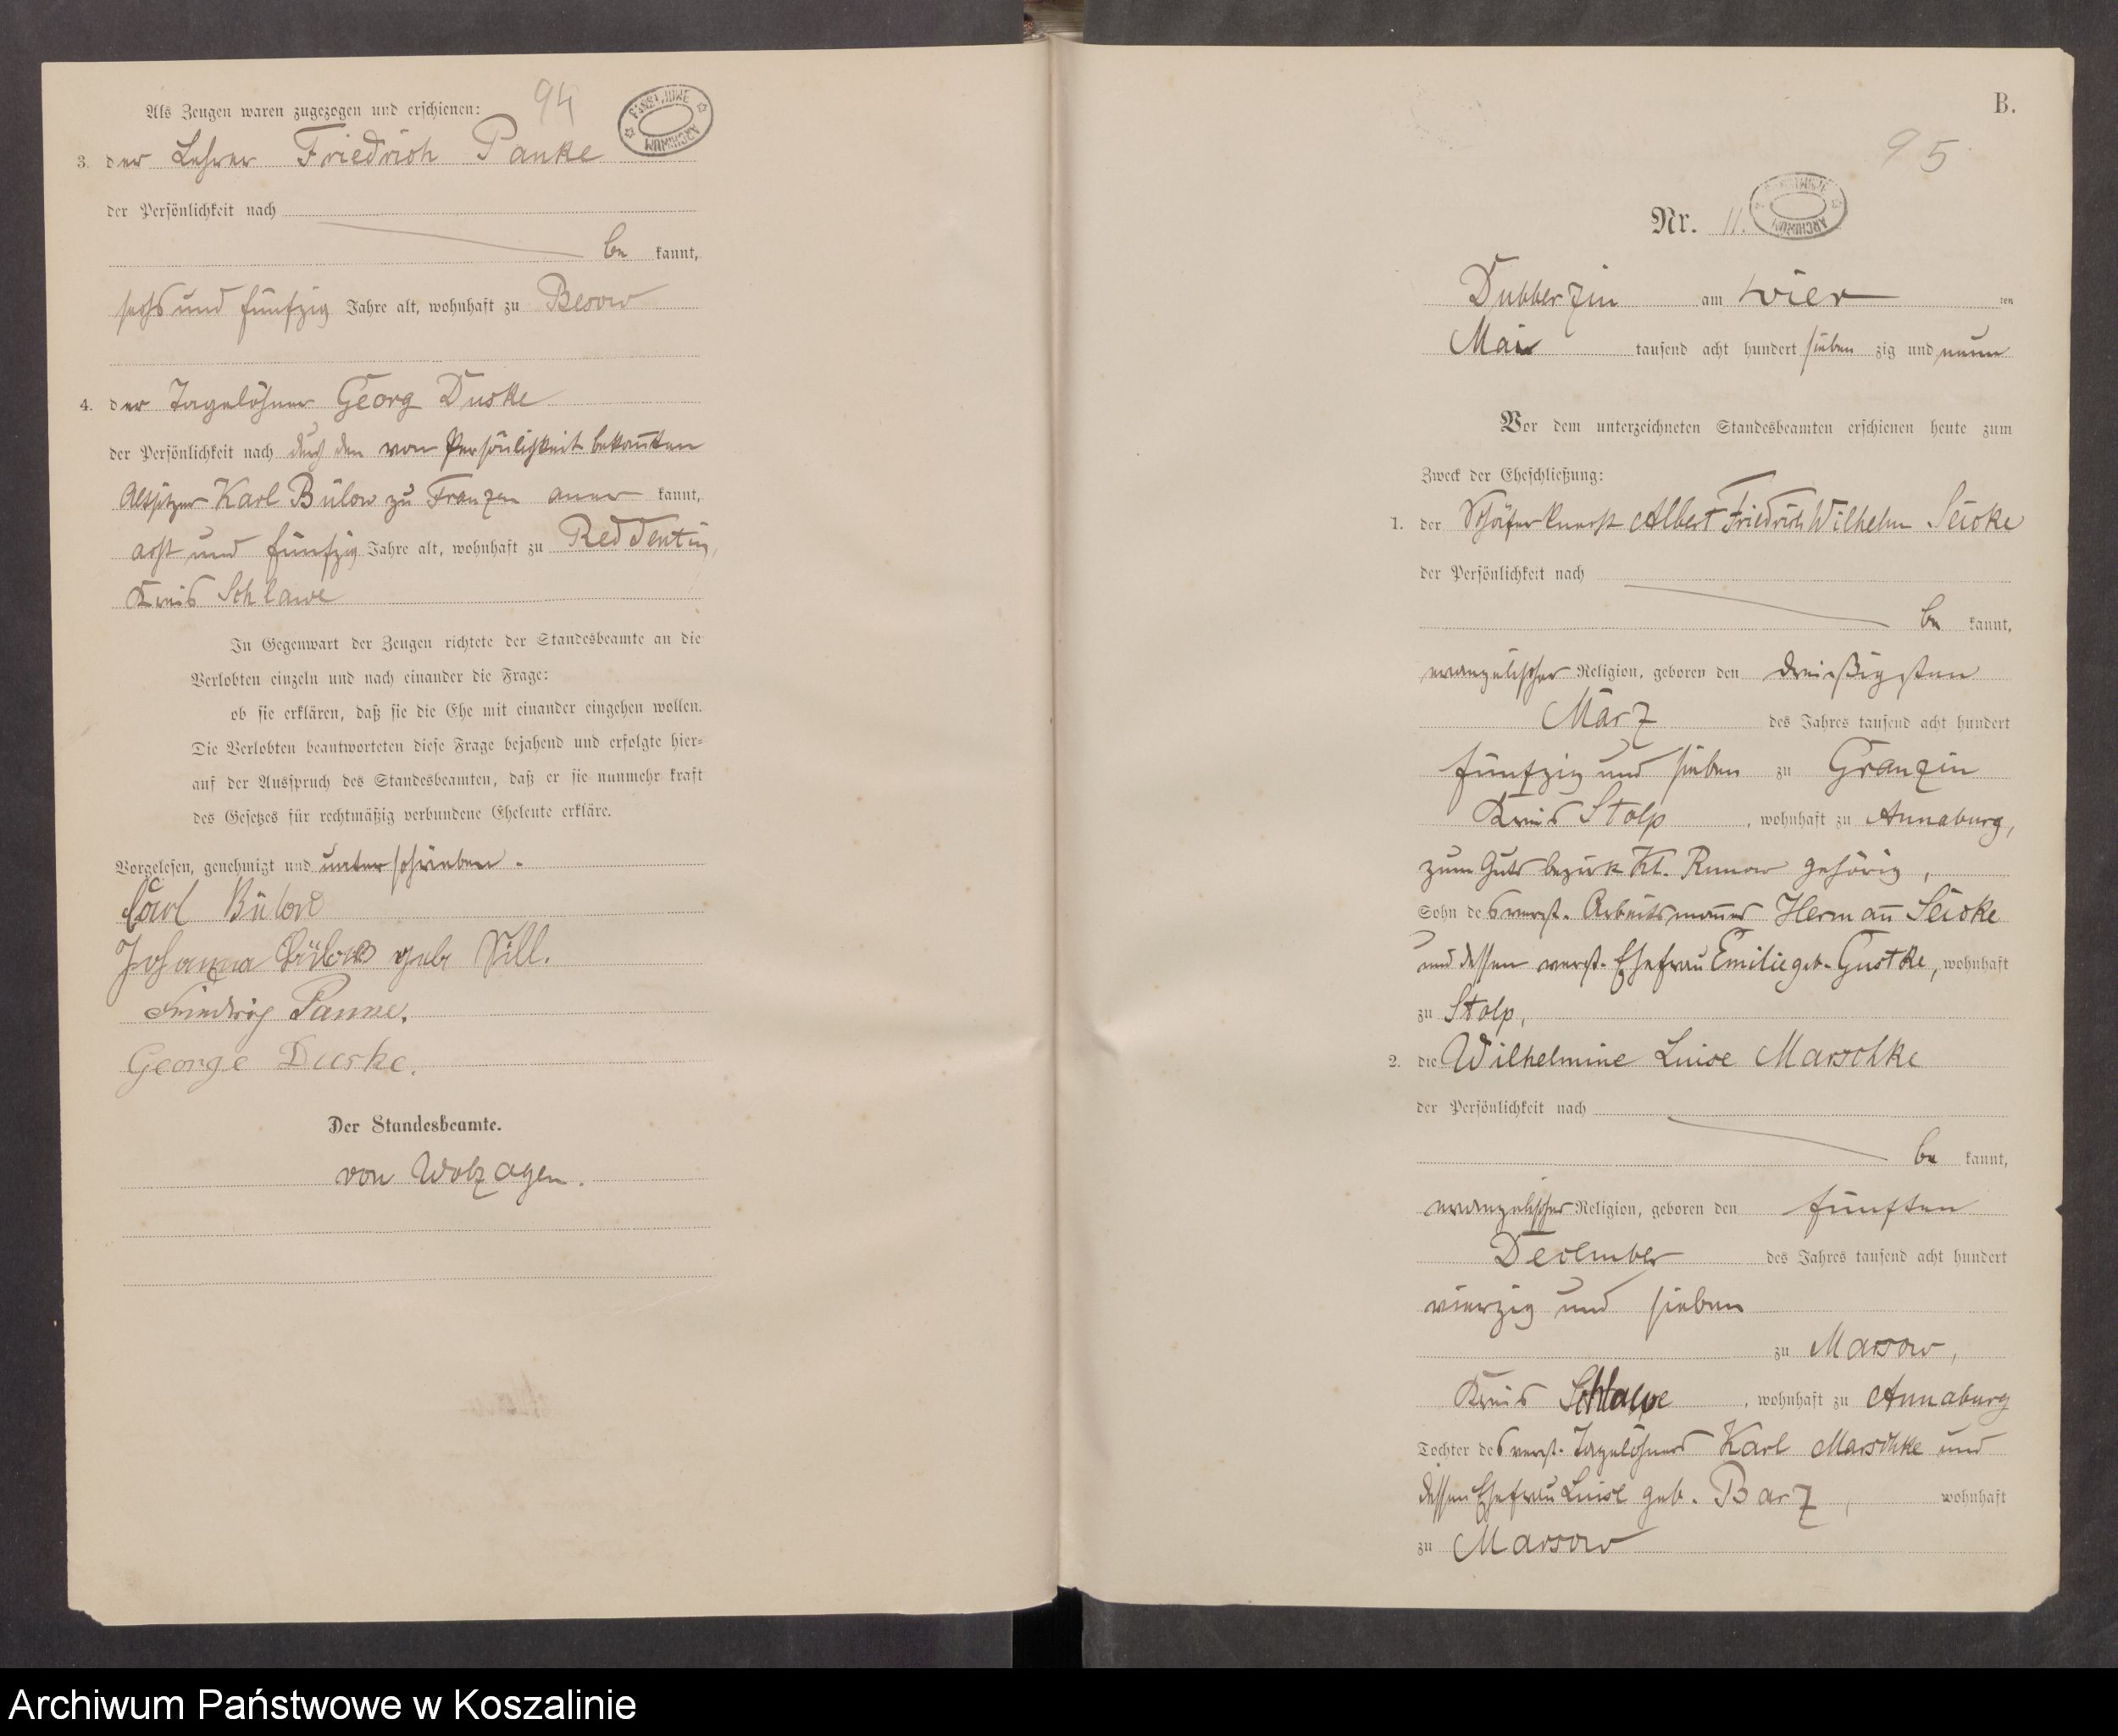 94
Als Zeugen waren zugezogen und erschienen:
3. der Lehrer Friedrich Panke
der Persönlichkeit nach
be kannt,
sechs und fünfzig Jahre alt, wohnhaft zu Besow
4. der Tagelöhner Georg Duske
der Persönlichkeit nach durch den von Persönlichkeit bekannten
Altsitzer Karl Bülow zu Franzen aner kannt,
acht und fünfzig Jahre alt, wohnhaft zu Reddentin,
Kreis Schlawe
In Gegenwart der Zeugen richtete der Standesbeamte an die
Verlobten einzeln und nach einander die Frage:
ob sie erklären, daß sie die Ehe mit einander eingehen wollen.
Die Verlobten beantworteten diese Frage bejahend und erfolgte hier-
auf der Ausspruch des Standesbeamten, daß er sie nunmehr kraft
des Gesetzes für rechtmäßig verbundene Eheleute erkläre.
Vorgelesen, genehmigt und unterschrieben.
Carl Bülow
Johanna Bülow geb. Sill.
Friedrich
George Duske.
Der Standesbeamte.
von Wolzogen.
B.
95
Nr. 11.
Dubberzin am vier ten
Mai tausend acht hundert sieben zig und neun
Vor dem unterzeichneten Standesbeamten erschienen heute zum
Zweck der Eheschließung:
1. der Schäferknecht Albert Friedrich Wilhelm Seicke
der Persönlichkeit nach
be kannt,
evangelischer Religion, geboren den dreißigsten
März des Jahres tausend acht hundert
fünfzig und sieben zu Granzin
Kreis Stolp, wohnhaft zu Annaburg,
zum Gutsbezirk Kl. Runow gehörig,
Sohn des verst. Arbeitsmannes Hermann Seicke
und dessen verst. Ehefrau Emilie geb. Gustke, wohnhaft
zu Stolp,
2. die Wilhelmine Luise Marschke
der Persönlichkeit nach
be kannt,
evangelischer Religion, geboren den fünften
December des Jahres tausend acht hundert
vierzig und sieben
zu Marsow,
Kreis Schlawe, wohnhaft zu Annaburg
Tochter des verst. Tagelöhners Karl Marschke und
dessen Ehefrau Luise geb. Barz, wohnhaft
zu Marsow
Archiwum Państwowe w Koszalinie